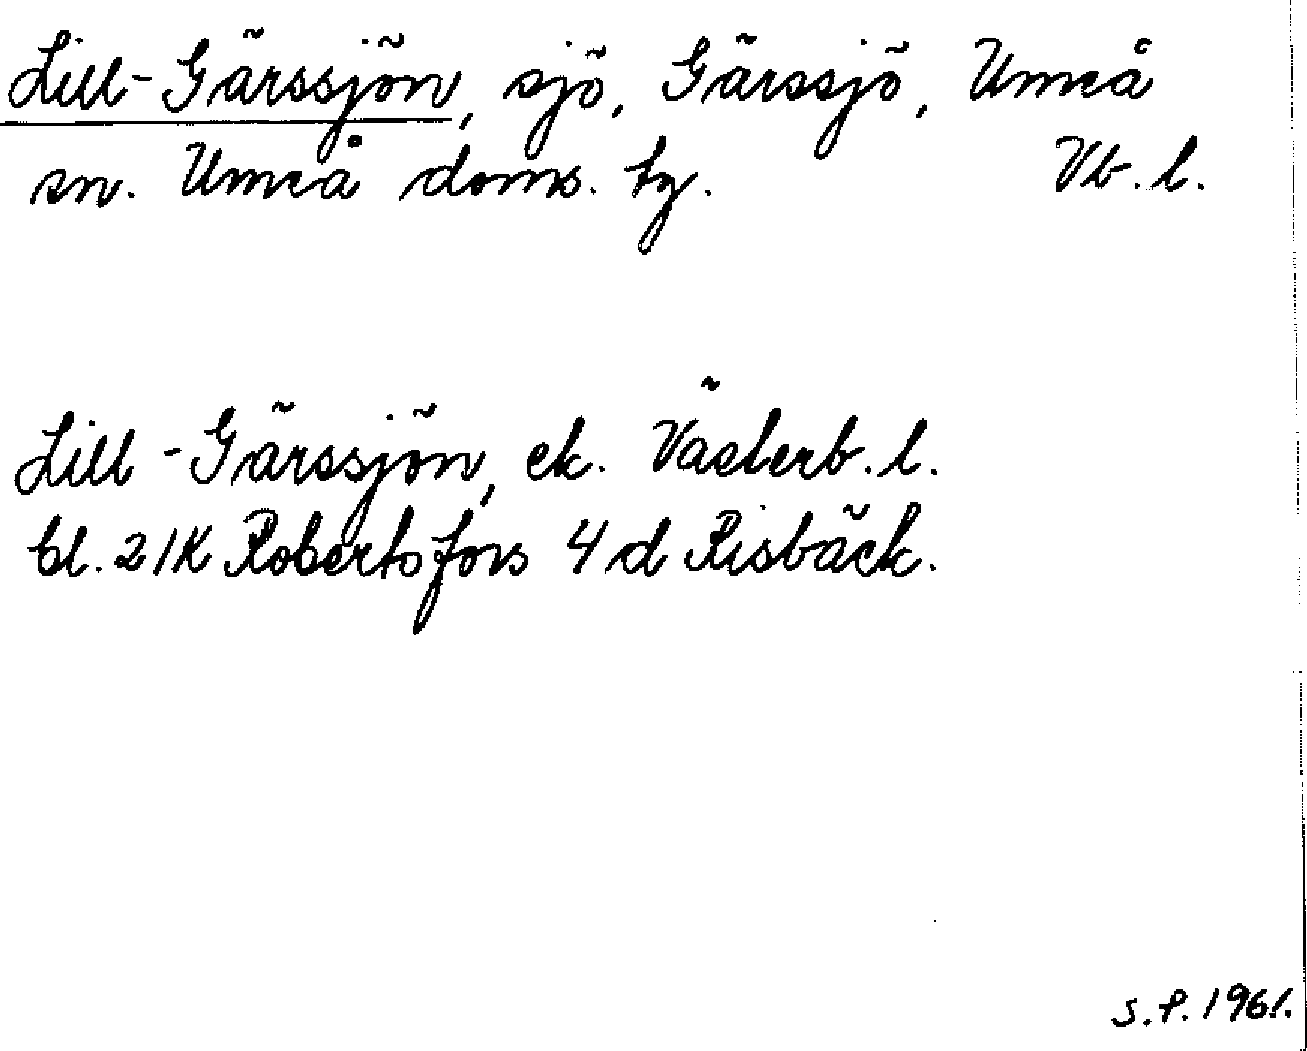 Lill-Gärssjön, sjö, Gärssjö, Umeå
sn. Umeå doms. tg. Vb. l.
Lill-Gärssjön, ek. Västerb. l.
bl. 21K Robertsfors 4d Risbäck.
S.P. 1961.